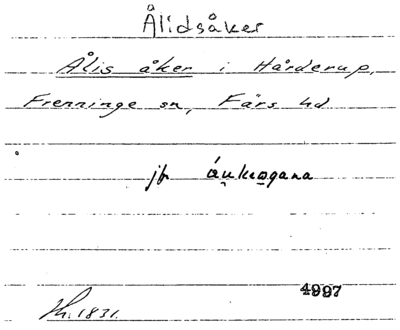 Ålidsåker
Ålis åker i Hårderup,
Frenninge sn, Färs hd
jfr áukrogana
4997
1831.